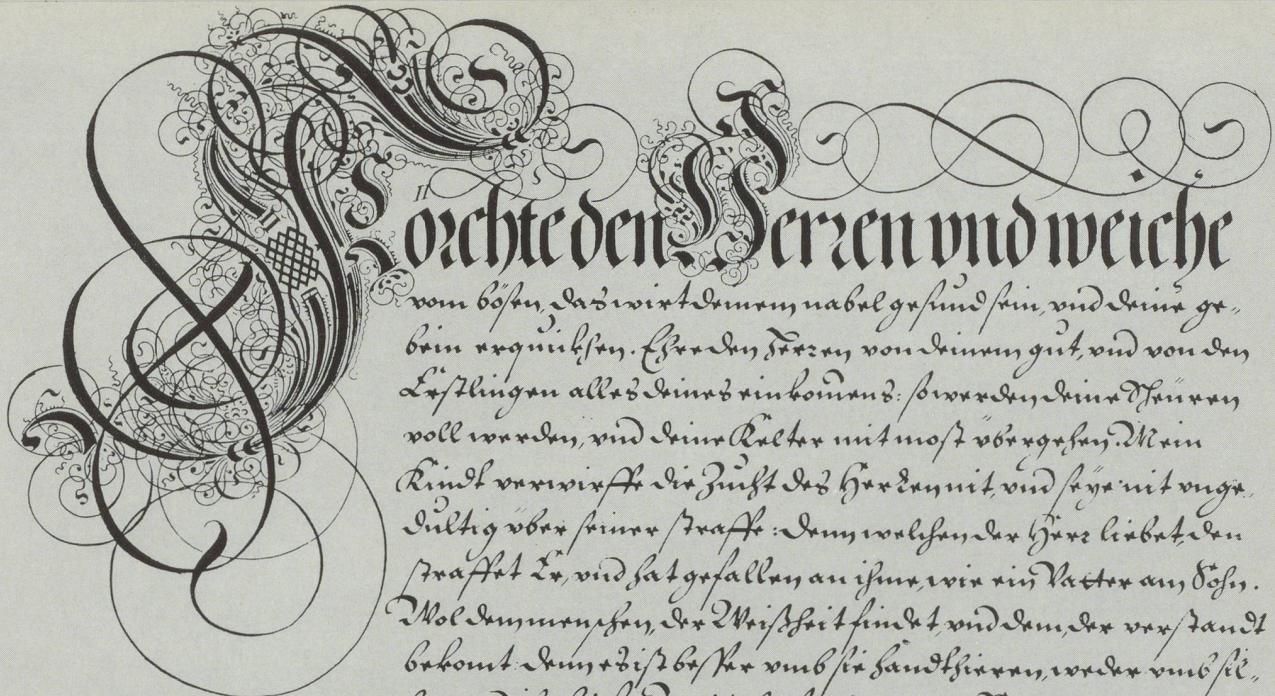 Förchte den Herren vnd weiche
vom bösen, das wirt deinem nabel gesund sein, vnd deine ge-
bein erquicksen. Ehre den Herren von deinem gut, vnd von den
Erstlingen alles deines einkomens: so werden deine Scheüren
voll werden, vnd deine Kelter mit most vbergehen. Mein
Kindt verwirffe die Zucht des Herren nit, vnd seye nit vnge-
dultig vber seiner straffe: denn welchen der Herr liebet, den
straffet Er, vnd hat gefallen an ihme, wie ein Vatter am Sohn.
Wol dem menschen, der Weißheit findet, vnd dem, der verstandt
bekomt: denn es ist besser vmb sie handthieren, weder vmb sil-